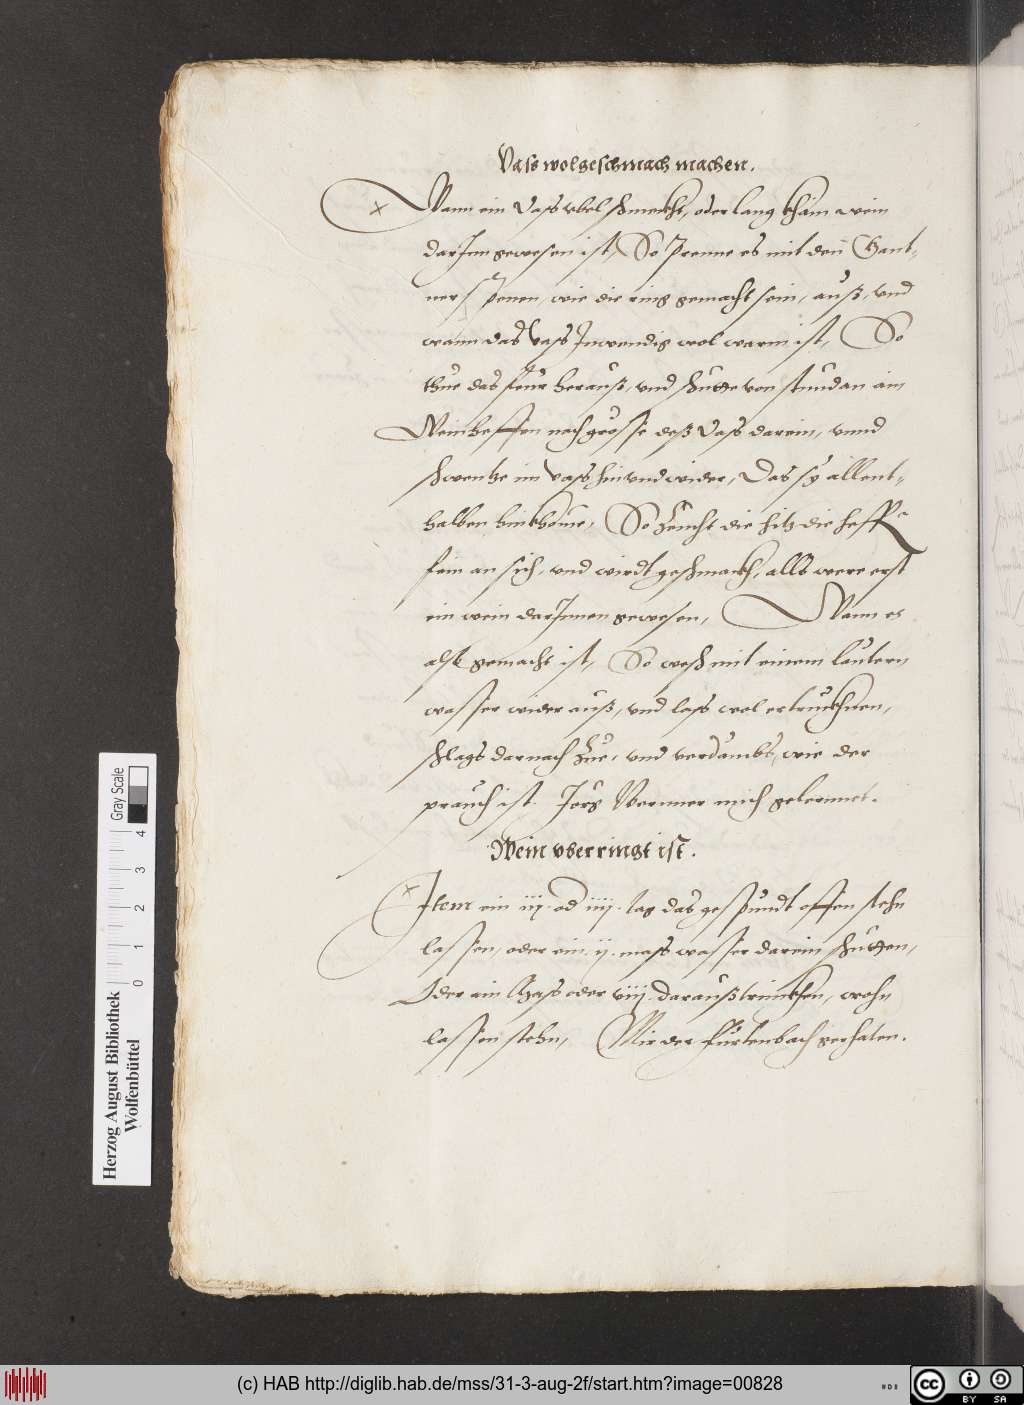 Vass wolgeschmach machen.
Wann ein Vass vbel schmeckht, oder lang kham wein
darInn gewesen ist, So prenne es mit den Gant-
ner Spenen, wie die ring gemacht sein, auß, vnd
wann das vass Inwendig wol warm ist, So
thue das feur herauß, vnd schutte von stundan ain
Weinheffen nach grösse deß Vass darein, vnnd
schwentze im vass hin vnd wider, Das sy allent-
halben hinkhome, So zeucht die hitz die heffen
fein an sich, vnd wirdt geschmackh, alls were erst
ein wein darInnen gewesen, Wann es
alls gemacht ist, So wesch mit einem lautern
wasser wider auß, vnd lass wol ertruckhnen,
schlags darnach zue, vnd verdambs, wie der
prauch ist. Jörg Wernner mich gelernnet.
Wein vberringt ist.
Item ein iij. od iiij. tag das gespundt offen stehn
lassen, oder ein ij. mass wasser darein schutten,
Oder ain Mass oder viij. darauß trinckhen, vnd
lassen stehn, Mir der furtenbach gerhaten.
Herzog August Bibliothek
Wolfenbüttel
0 1 2 3 4
Gray Scale
(c) HAB http://diglib.hab.de/mss/31-3-aug-2f/start.htm?image=00828
cc BY SA